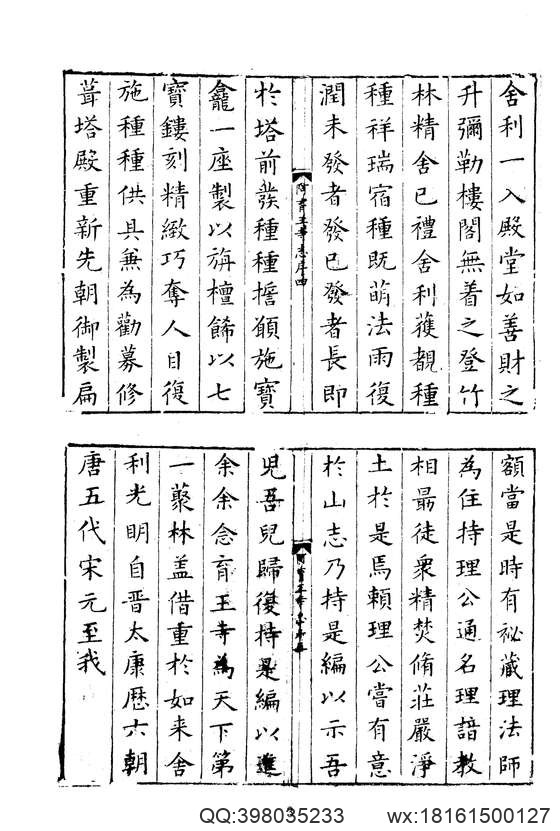 舍利一入殿堂如善財之
升彌勒樓閣無着之登竹
林精舍已禮舍利獲覩種
種祥瑞宿種既萌法雨復
潤未發者發已發者長即
阿育王寺志序四
於塔前發種種擔願施寶
龕一座製以旃檀餙以七
寶鏤刻精緻巧奪人目復
施種種供具兼為勸募修
葺塔殿重新先朝御製扁
額當是時有祕藏理法師
為住持理公通名理諳教
相最徒衆精焚脩莊嚴淨
土於是焉賴理公嘗有意
於山志乃持是編以示吾
兒吾兒歸復持是編以進
余余念育王寺為天下第
一藂林盖借重於如来舍
利光明自晉太康歷六朝
唐五代宋元至我
QQ:398035233 wx:18161500127